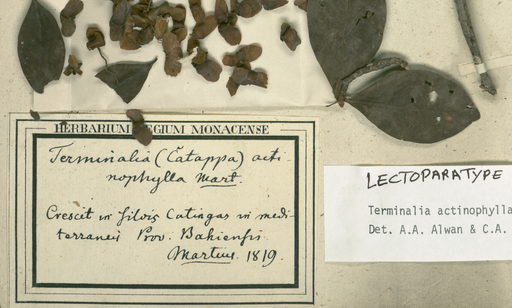 HERBARIUM REGIUM MONACENSE
Terminalia (Catappa) acti-
nophylla Mart.
Crescit in silvis Catingas in medi-
terraneis Prov. Bahiensis.
Martius. 1819.
LECTOPARATYPE
Terminalia actinophylla
Det. A.A. Alwan & C.A.